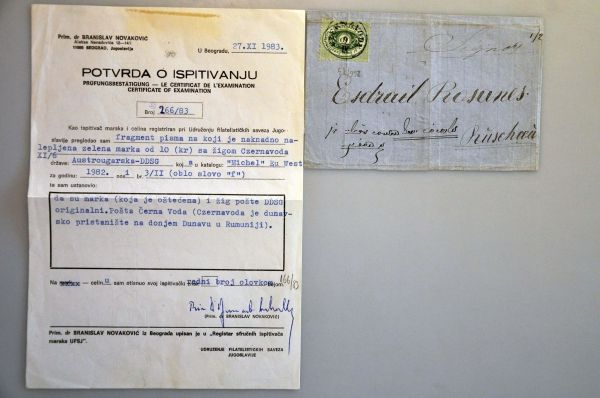 Prim. dr BRANISLAV NOVAKOVIĆ
11000 BEOGRAD, Jugoslavija
U Beogradu, 27.XI 1983.
POTVRDA O ISPITIVANJU
PRÜFUNGSBESTÄTIGUNG — LE CERTIFICAT DE L'EXAMINATION
CERTIFICATE OF EXAMINATION
Broj 266/83
Kao ispitivač maraka i celina registriran pri Udruženju filatelističkih saveza Jugo-
slavije pregledao sam fragment pisma na koji je naknadno na-
lepljena zelena marka od 10 (kr) sa žigom Czernavoda
XI/6
države: Austrougarska-DDSG koja u katalogu: "Michel" Eu West
za godinu: 1982. nosi br. 3/II (oblo slovo "f")
te sam ustanovio:
da su marka (koja je oštećena) i žig pošte DDSG
originalni. Pošta Černa Voda (Czernavoda je dunav-
sko pristanište na donjem Dunavu u Rumuniji).
Na — celinu sam otisnuo svoj ispitivački radni broj olovkom 166/83
(Prim. dr BRANISLAV NOVAKOVIĆ)
Prim. dr BRANISLAV NOVAKOVIĆ iz Beograda upisan je u „Registar stručnih ispitivača
maraka UFSJ".
UDRUŽENJE FILATELISTIČKIH SAVEZA
JUGOSLAVIJE
1/2
Rosanes